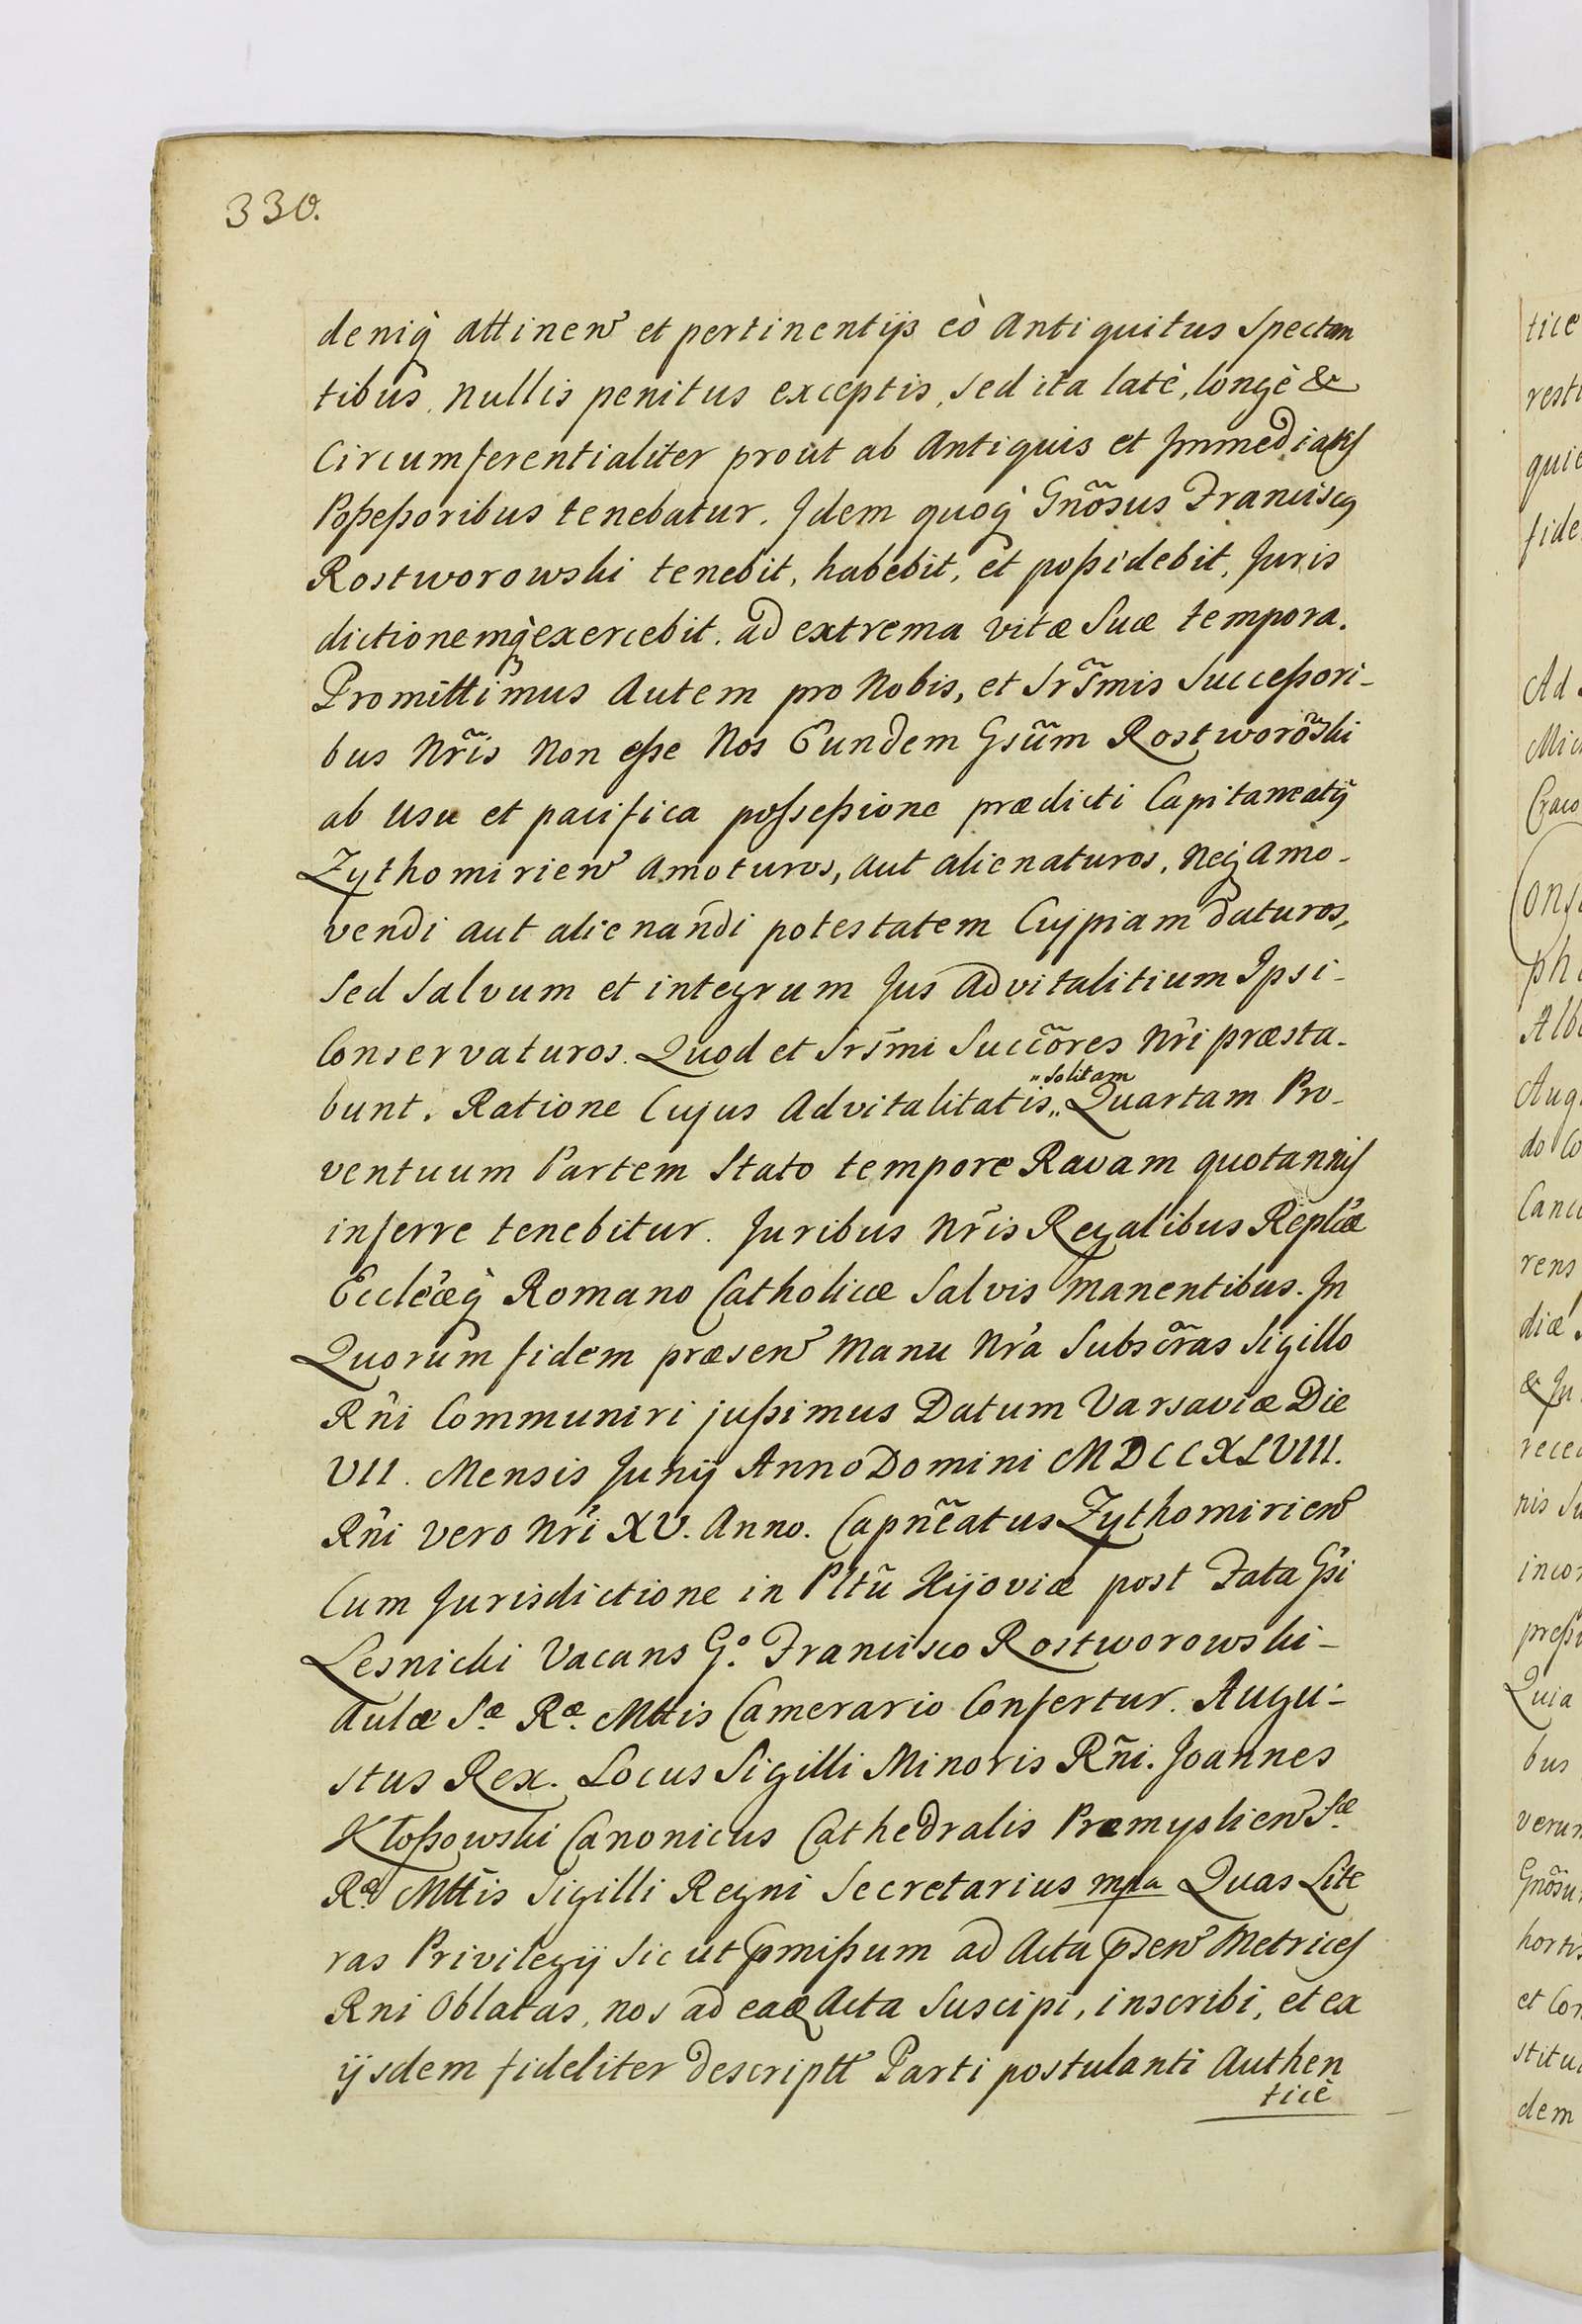 330.
deniq̀ attinen̄ et pertinentijs eò Antiquitus Spectan
tibus, nullis penitus exceptis, sed ita latè, longè &
Circumferentialiter prout ab Antiquis et Immediatis
Poßeßoribus tenebatur. Idem quoq̀ Gnõsus Franciscq
Rostworowski tenebit, habebit, et poßidebit, Juris
dictionemq̀ exercebit. ad extrema vitæ Suæ tempora.
Promittimus Autem pro Nobis, et Srs̃mis Succeßori-
bus Nrĩs Non eße Nos Eundem Gsũm Rostworõski
ab Usu et pacifica poſseßione prædicti Capitaneatq
Zythomirien̄ Amoturos, aut alienaturos, Neq Amo-
vendi aut alienandi potestatem Cuipiam daturos,
Sed Salvum et integrum Jus Advitalitium Ipsi-
Conservaturos. Quod et Srs̃mi Succc̃ores Nrĩ præsta-
„Solitam
bunt. Ratione Cujus Advitalitatis„ Quartam Pro-
ventuum Partem Stato tempore Ravam quotannis
inferre tenebitur. Juribus Nrĩs Regalibus Reiplicæ
Eccleæq̀ Romano Catholicæ Salvis Manentibus. In
Quorum fidem præsen̄ Manu Nrã Subscr̃as Sigillo
Rñi Communiri jußimus Datum Varsaviæ Die
VII. Mensis Junij Anno Domini MDCCXLVIII.
Rñi vero Nrĩ XV. Anno. Capnẽatus Zythomirien̄
Cum Jurisdictione in Pltũ Kijoviæ post Fata Gsi
Lesnicki Vacans G.º Francisco Rostworowski-
Aulæ S.æ R.æ Mttis Camerario Confertur. Augu-
stus Rex. Locus Sigilli Minoris Rñi. Joannes
Kłoßowski Canonicus Cathedralis Præmyslien̄ S.æ
R.æ Mttis Sigilli Regni Secretarius mpa Quas Lite
ras Privilegij Sic ut p̄mißum ad Acta p̄sen̄ Metrices
Rni Oblatas, nos ad eaq Acta Suscipi, inscribi, et ex
ijsdem fideliter descriptt Parti postulanti Authen
ticè